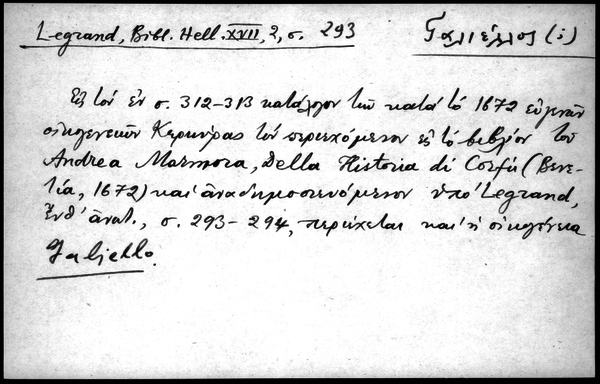 Legrand, Bibl. Hell. XVII, 2, σ. 293
Γαλιέλλος (;)
Εἰς τὸν ἐν σ. 312-313 κατάλογον τῶν κατὰ τὸ 1672 εὐγενῶν
οἰκογενειῶν Κερκύρας τὸν περιεχόμενον εἰς τὸ βιβλίον τοῦ
Andrea Marmora, Della Historia di Corfù (Βενε-
τία, 1672) καὶ ἀναδημοσιευόμενον ὑπὸ Legrand,
ἔνθ' ἀνωτ., σ. 293-294, περιέχεται καὶ ἡ οἰκογένεια
Galiello.